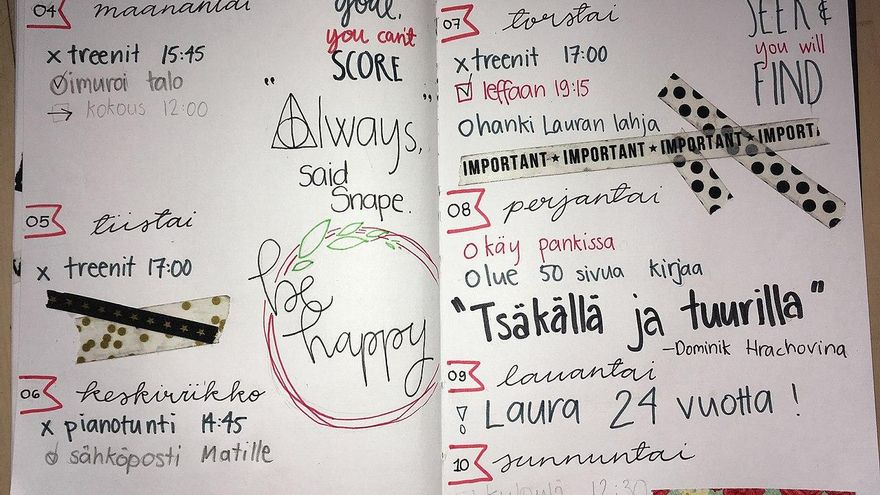 04 maanantai
x treenit 15:45
imuroi talo
→ kokous 12:00
goal,
you can't
SCORE
"Always,"
said
Snape.
05 tiistai
x treenit 17:00
be
happy
06 keskiviikko
x pianotunti 14:45
sähköposti Matille
07 torstai
x treenit 17:00
leffaan 19:15
O hanki Lauran lahja
SEEK &
you will
FIND
IMPORTANT ★ IMPORTANT ★ IMPORTANT ★ IMPORT
08 perjantai
O käy pankissa
O lue 50 sivua kirjaa
"Tsäkällä ja tuurilla"
-Dominik Hrachovina
09 lauantai
! Laura 24 vuotta !
10 sunnuntai
12:30